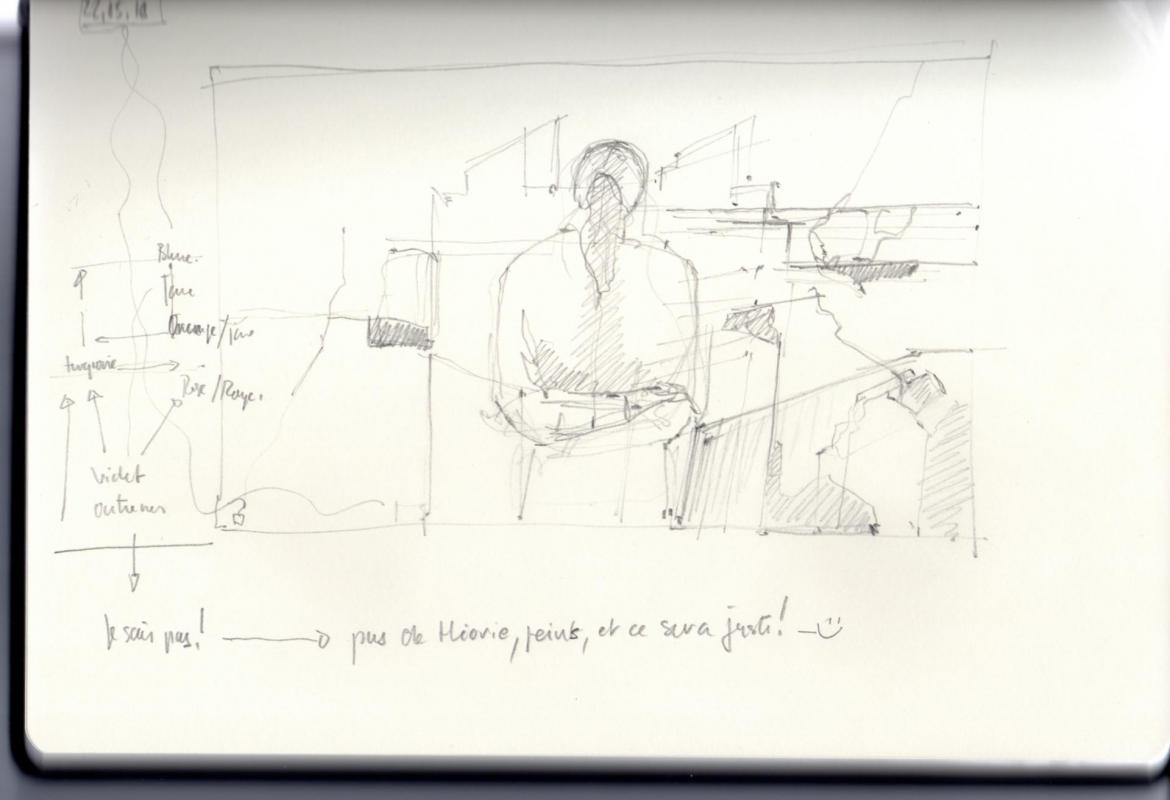 Orange/jaune
turquoise
Rose/Rouge.
violet
outremer
Je sais pas! pas de théorie, peins, et ce sera juste!